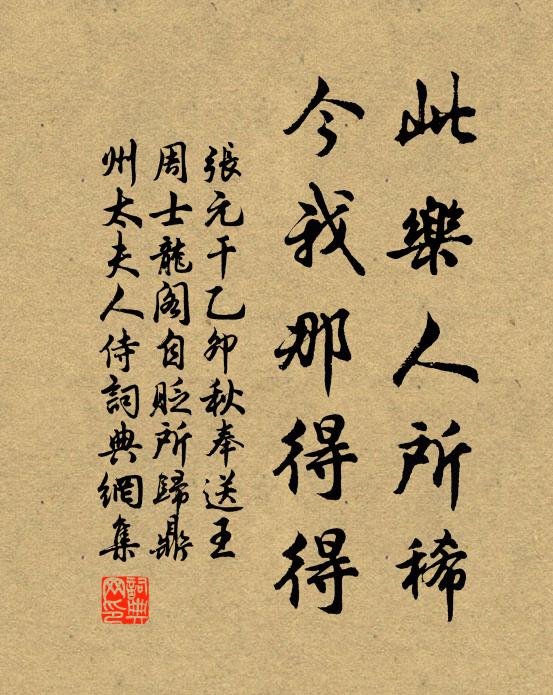 此樂人所稀
今我那得得
張元干乙卯秋奉送王
周士龍阁自貶所歸鼎
州太夫人侍詞典網集
詞典
网印